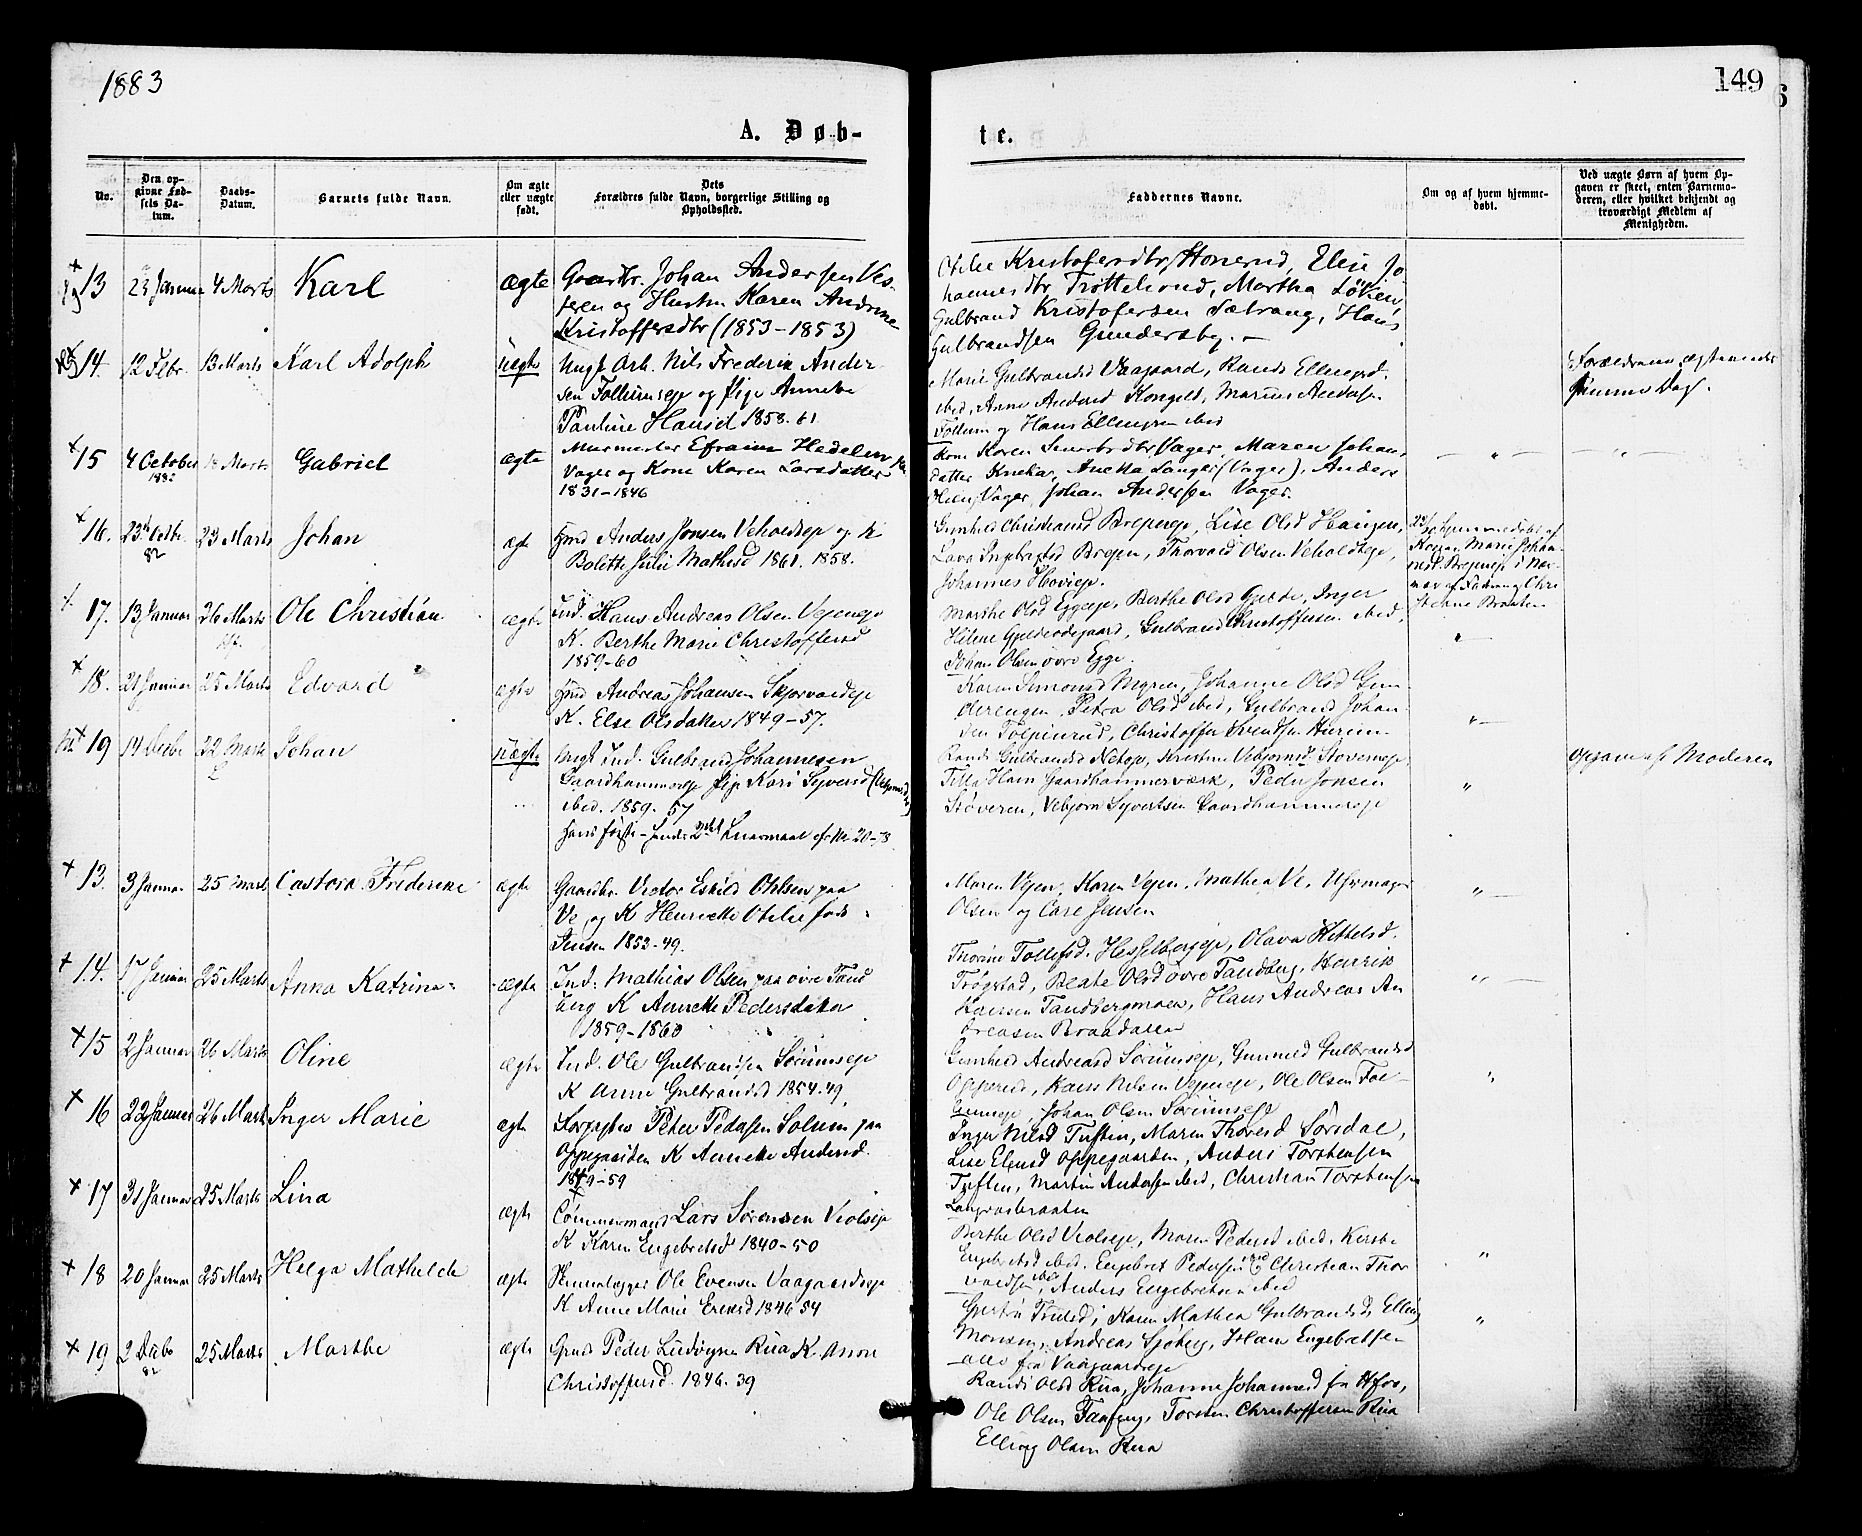 1883
149
A. Døb-
te.
No.
Den op-
givne Fød-
sels Da-
tum.
Daabs-
Datum.
Barnets fulde Navn.
Om ægte
eller uægte
født.
Dets
Forældres fulde Navn, borgerlige Stilling og
Opholdssted.
Faddernes Navne.
Om og af hvem hjemme-
døbt.
Ved uægte Børn af hvem Op-
gaven er skeet, enten Barnemo-
deren, eller hvilket bekjendt og
troværdigt Medlem af
Menigheden.
13 23 Januar 4 Marts Karl ægte Gaardbr. Johan Andersen Ves-
teren og Hustru Karen Andrine
Kristoffersdtr (1853-1853)
Otilie Kristofersdtr Honerud, Elise Jo
hannesdtr Trøttelsrud, Martha Løken
Gulbrand Kristofersen Sætrang, Hans
Gulbrandsen Gundersby. -
14. 12 Febr. 13 Marts Karl Adolph uægte Ungk. Arb. Nils Frederik Ander-
sen Follumseje og Pige Annette
Pauline Hansd 1858. 61
Marie Gulbrandsd Vaagaard, Randi Ellingsd.
ibid, Anne Andersd Kongeld, Marius Anders.
Follum og Hans Ellingsen ibid
Forældrene ægteviede
samme Dag.
15 4 October Marts Gabriel ægte Murmester Efraim Hedelin
Vager og Kone Karen Larsdatter
1831-1846
Kone Karen Vager, Maren Johans
datter Knekar, Anetta Langer (Vager), Anders
Olsen Vager, Johan Andersen Vager.
16. 23d Octbr. 82 23 Marts Johan ægte Gmd Anders Jonsen Veholdseje og K
Bolette Julie Mathisd 1861. 1858.
Gunhild Christiansd Bregneje, Lise Olsd Haugen,
Lava Ingebretsd Breien, Thorvald Olsen Veholdteje,
Johannes Hovieje.
hjemmedøbt af
Karen Marie Johan-
17. 13 Januar 26 Marts Ole Christian ægte Ind. Hans Andreas Olsen Vejeneje
K. Berthe Marie Christoffersd
1859-60
Marthe Olsd Eggeeje, Berthe Olsd Gjelde, Inger
Helene Gjeldeødegaard, Gulbrand Christoffersen ibid,
Johan Olsen øvre Egge.
18. 21 Januar 25 Marts Edvard ægte Gmd Andreas Johansen Skjørvoldeje
K. Else Olsdatter 1849-57.
Karen Simonsd Myren, Johanne Olsd Gun-
derengen, Petra Olsd ibid, Gulbrand Johan-
sen Tolpinrud, Christoffer Svendsen Hurum
19 14 Decbr 22 Marts Johan uægte Ungk Ind. Gulbrand Johannesen
Gaardhammereje Pige Kari Syversd
ibid. 1859. 57
hans første - hendes 2det Leiermaal
Randi Gulbrandsd Netop, Kristine Vebjørnsd Støvereneje,
Tilla Havn Gaardhammerværk, Peder Jonsen
Støveren, Vebjørn Syvertsen Gaardhammereje
Opgave af Moderen
13. 3 Januar 25 Marts Castora Frederikke ægte Gaardbr. Victor Eskild Ohlsen paa
Ve og K Henriette Otilie født
Jensen 1853-49.
Maren Vejen, Karen Vejen, Mathea Ve, Uhrmager
Olsen og Carl Jensen
14. 17 Januar 25 Marts Anna Katrine ægte Ind. Mathias Olsen paa øvre Tand
berg K Annette Pedersdatter
1859-1860
Thorine Tollefsd. Hesselbergeje, Olava Kittelsd.
Trøgstad, Beate Olsd øvre Tandberg, Henrik
Larsen Tandbergmoen, Hans Andreas An
dreasen Braadalen
15 2 Januar 26 Marts Oline ægte Ind. Ole Gulbrandsen Sørumseje
K Anne Gulbrandsd 1854. 49.
Gunhild Andreasd Sørumseje, Gunnild Gulbrandsd
Oppered, Hans Nilsen Vejeneje, Ole Olsen Fol-
lumseje, Johan Olsen Sørumseje
16 22 Januar 26 Marts Inger Marie ægte Forpagter Peter Pedersen Solum paa
Oppegaarden K Annette Andersd.
1849-59
Inger Nilsd Tuften, Maren Thoresd Sørsdal,
Lise Elensd Oppegaarden, Anders Torstensen
Tuften, Martin Andersen ibid, Christian Torstensen
Langvasbraaten
17 31 Januar 25 Marts Lina ægte Tømmermand Lars Sørensen Veolseje
K Karen Engebretsd 1840-50
Berthe Olsd Veolseje, Maren Pedersd ibid, Kirstie
Engebretsd ibid. Engebret Pedersen ibid Christian Thor
valdsen ibid, Anders Engebretsen ibid
18 20 Januar 25 Marts Helga Mathilde ægte Skinnelægger Ole Evensen Vaagaardseje
K Anne Marie Erensd 1846 54
Karen Mathea Gulbrandsd, Elling
Monsen, Andreas Sjøberg, Johan Engebretsen
alle fra Vaagaardseje
19 2 Decbr 82 25 Marts Marthe ægte Gmd Peder Ludvigsen Rua K. Anne
Christoffersd. 1846. 39
Randi Olsd Rua, Johanne Johannesd fra Hfos,
Ole Olsen Taafeng, Torsten Christoffersen Rua
Elling Olsen Rua